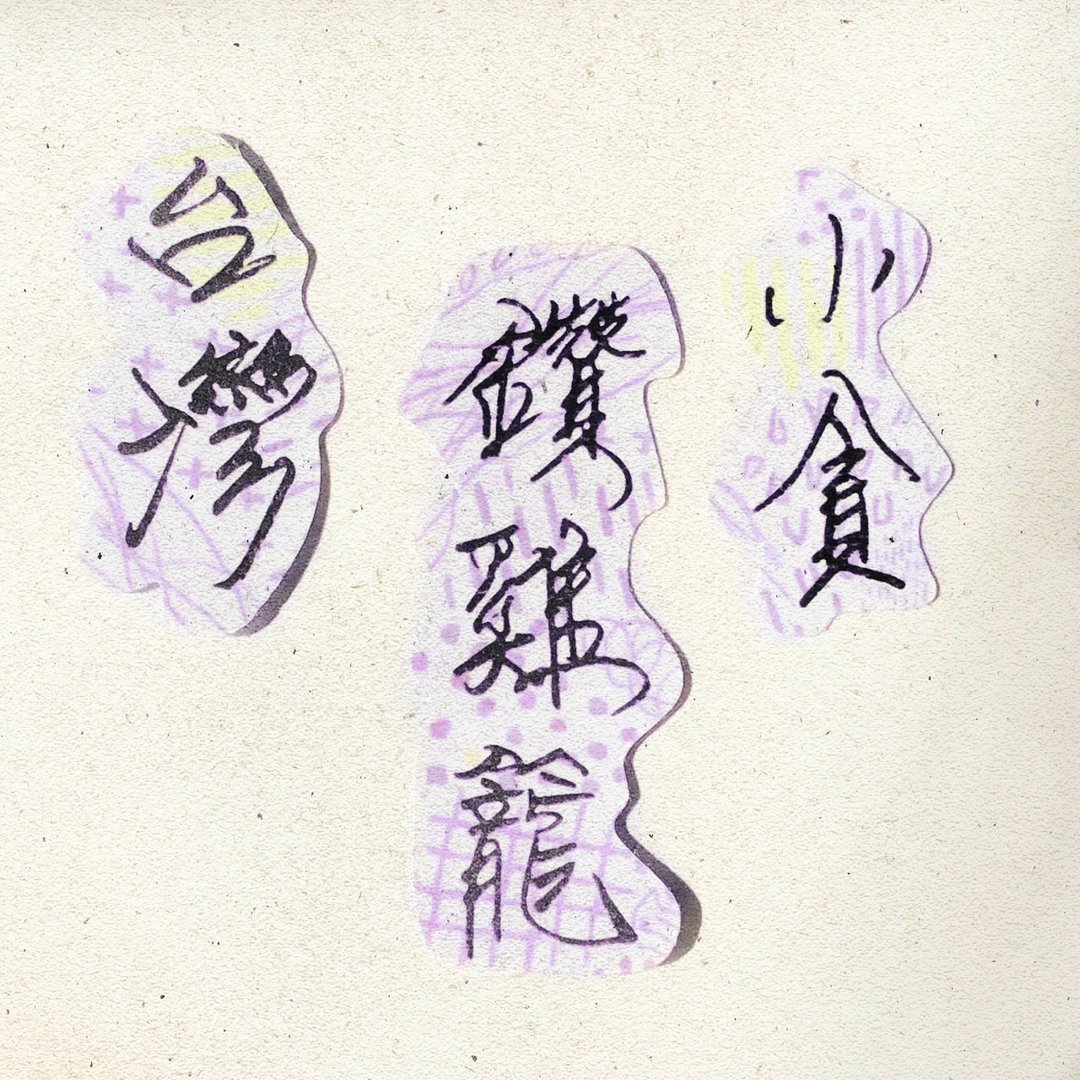 小貪
鑽雞籠
台灣